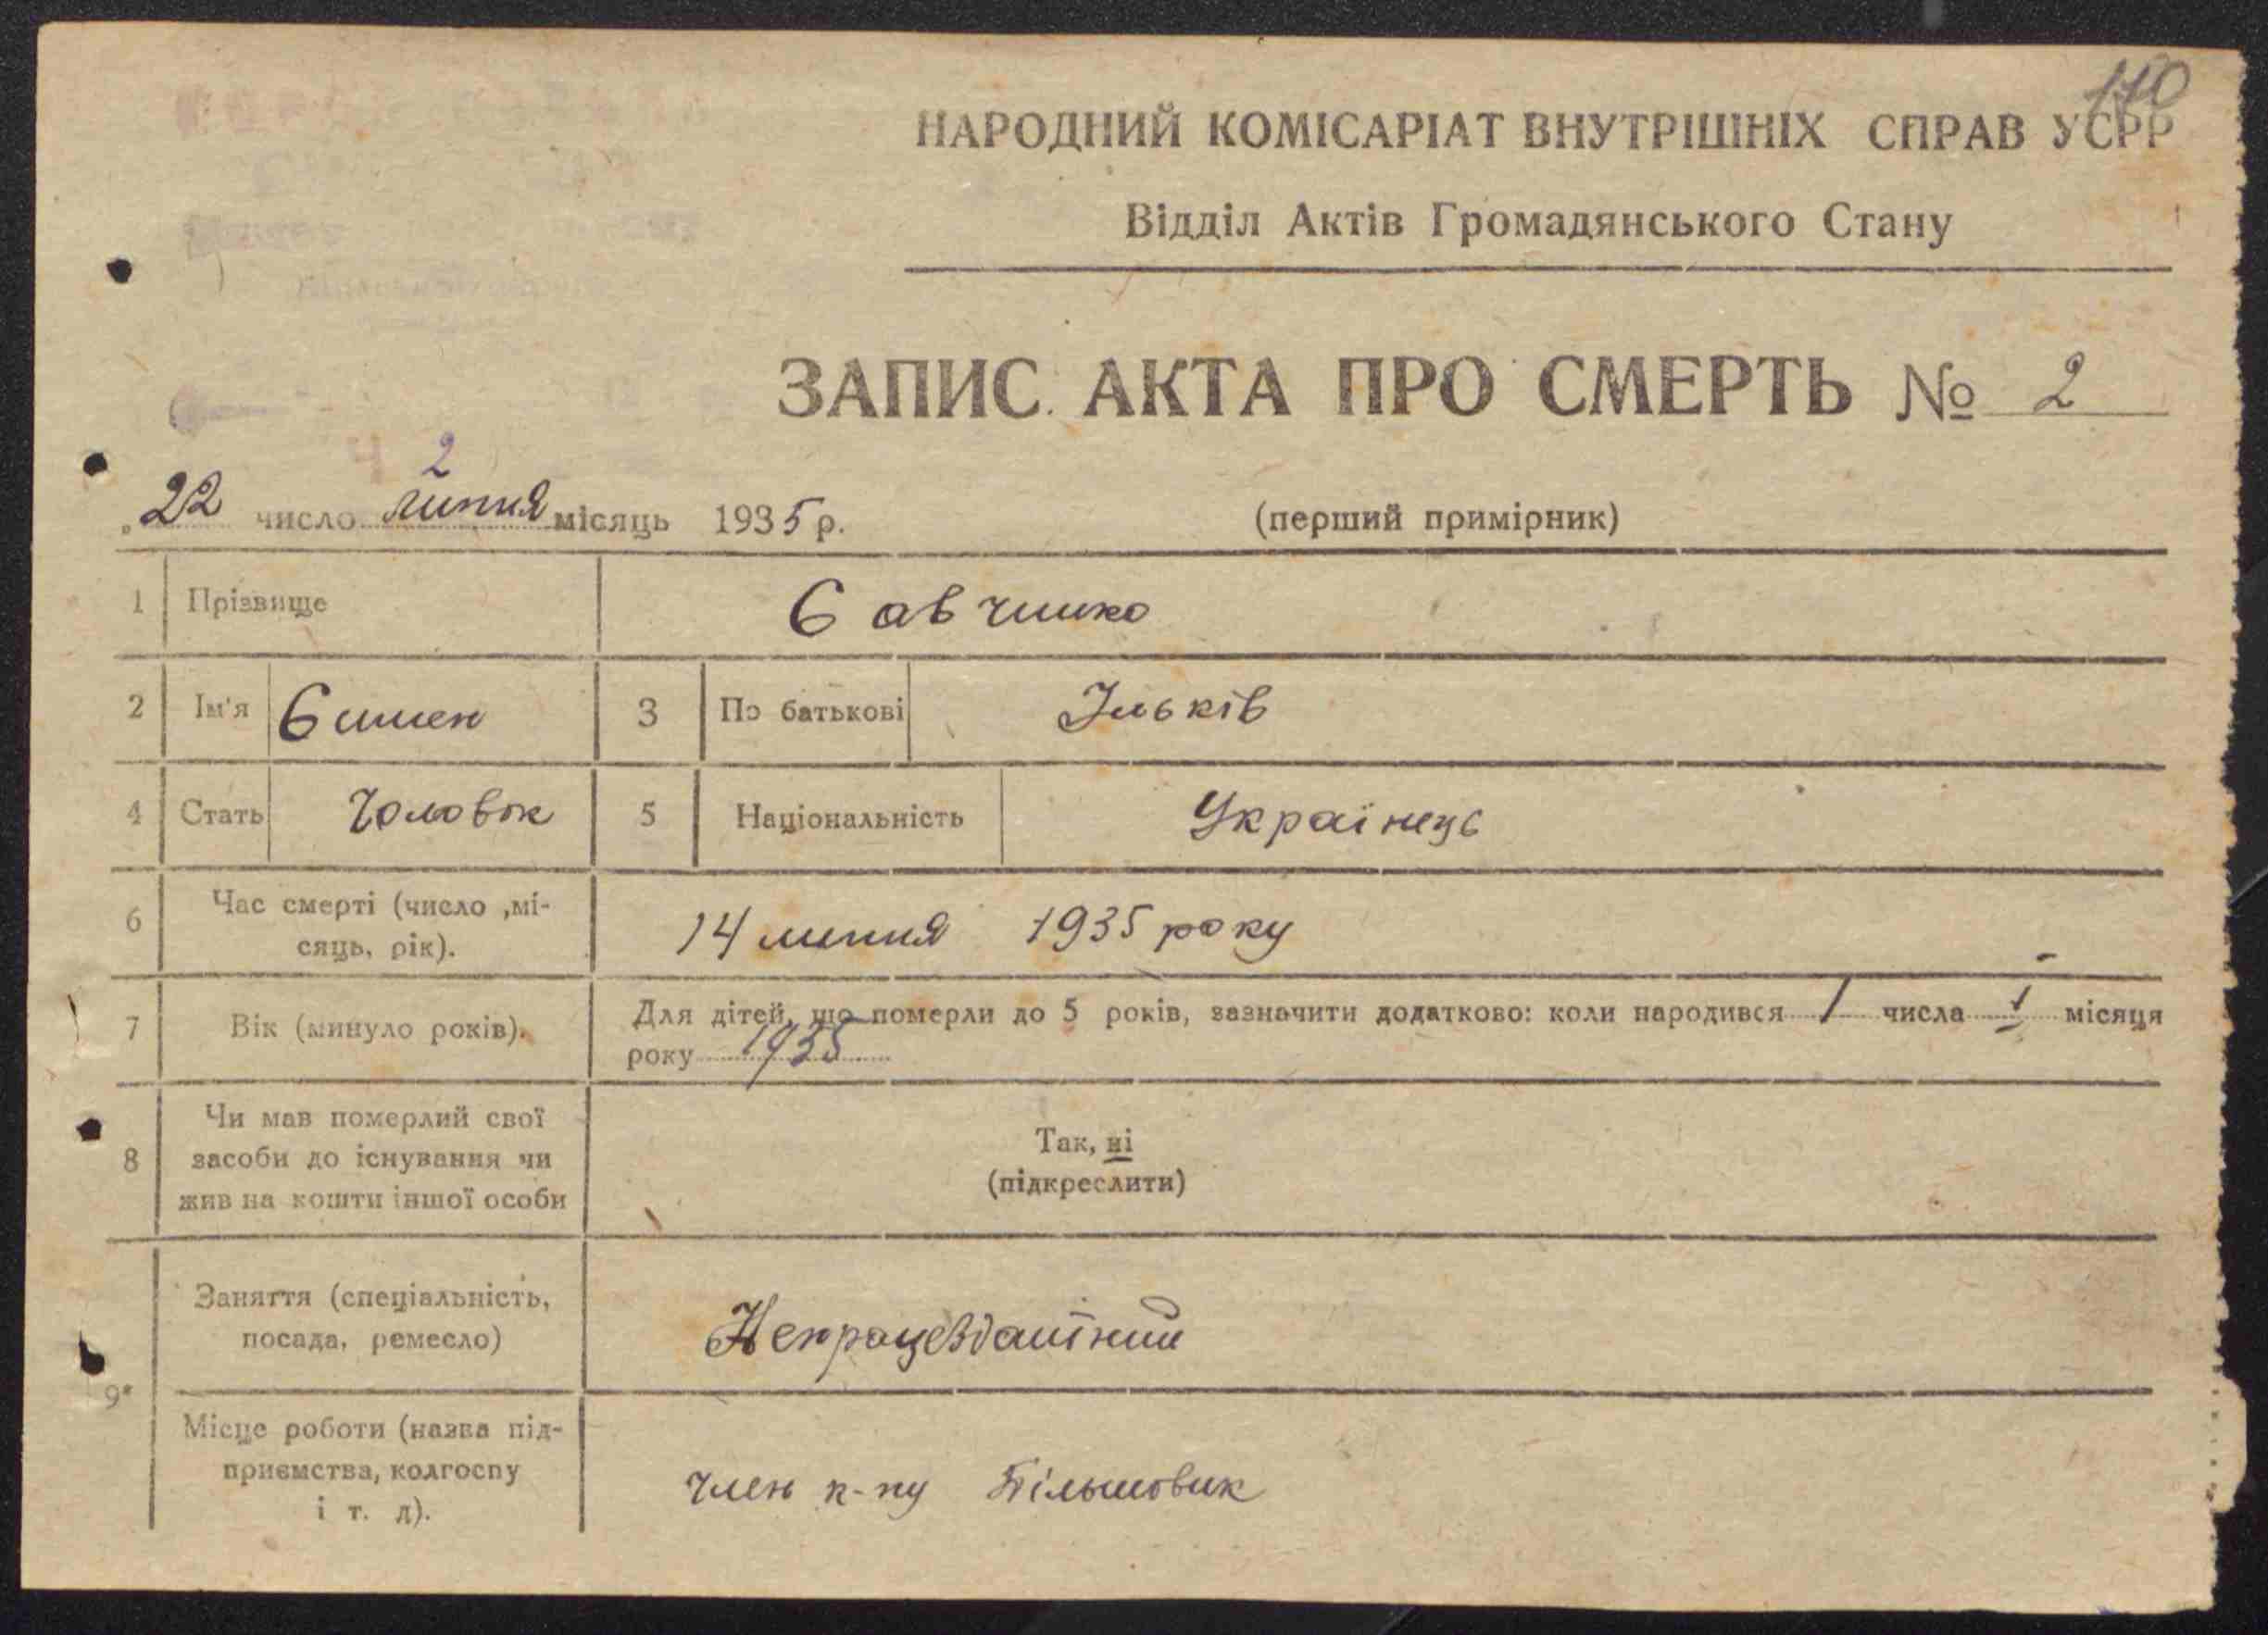 110
НАРОДНИЙ КОМІСАРІАТ ВНУТРІШНІХ СПРАВ УСРР
Відділ Актів Громадянського Стану
ЗАПИС АКТА ПРО СМЕРТЬ № 2
2
„22 число липня місяць 1935 р.
(перший примірник)
1 Прізвище Савчишко
2 Ім'я Симен 3 По батькові Ільків
4 Стать Чоловік 5 Національність Українець
6 Час смерті (число ,мі-
сяць, рік).
14 липня 1935 року
7 Вік (минуло років).
Для дітей, що померли до 5 років, зазначити додатково: коли народився 1 числа I місяця
року 1935
8 Чи мав померлий свої
засоби до існування чи
жив на кошти іншої особи
Так, ні
(підкреслити)
9 Заняття (спеціальність,
посада, ремесло)
Непрацездатний
Місце роботи (назва під-
приємства, колгоспу
і т. д).
Член к-пу Більшовик